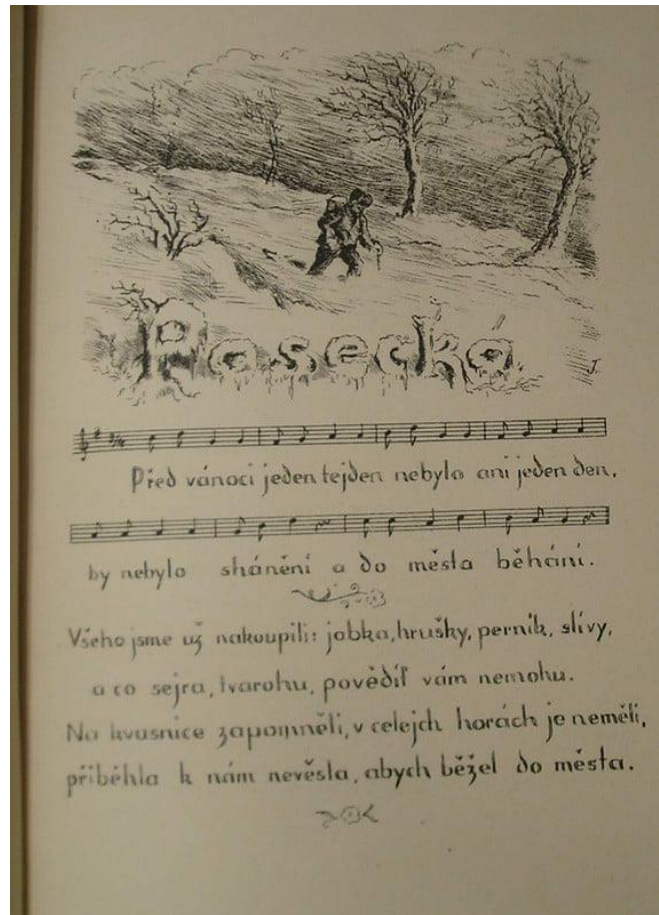 Pasecká
J.
Před vánoci jeden tejden nebylo ani jeden den,
by nebylo shánění a do města běhání.
Všeho jsme už nakoupili: jabka, hrušky, perník, slívy,
a co sejra, tvarohu, povědíť vám nemohu.
Na kvasnice zapomněli, v celejch horách je neměli,
přiběhla k nám nevěsta, abych běžel do města.